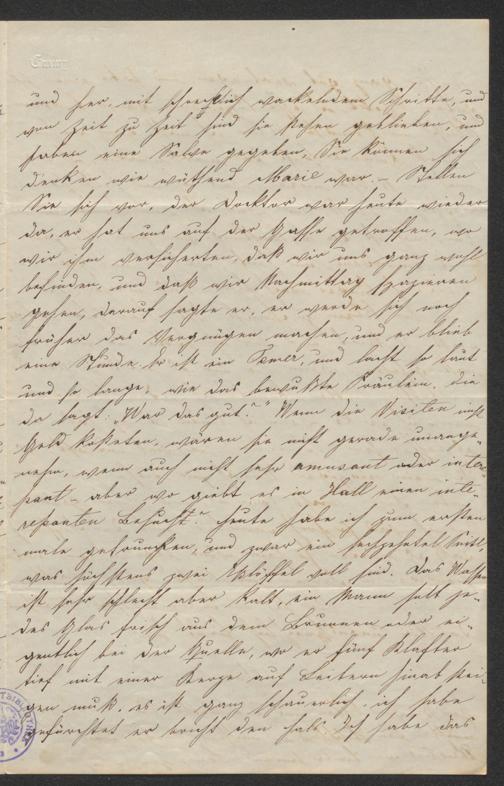 und her, mit schrecklich wackelndem Schritte, und
von Zeit zu Zeit sind sie stehen geblieben, und
haben eine Salve gegeben, Sie können sich
denken wie wüthend Marie war. – Stellen
Sie sich vor, der Docktor war heute wieder
da, er hat uns auf der Gasse getroffen, wo
wir ihm versicherten, daß wir uns ganz wohl
befinden, und daß wir Nachmittag spazieren
gehen, darauf sagte er, er werde sich noch
früher das Vergnügen machen, und er blieb
eine Stunde. Er ist ein und lacht so laut
und so lange, wie das bewußte Fräulein. die
da sagt: „War das gut?“ Wenn die Visiten nicht
Geld kosteten, wären sie nicht gerade unange-
nehm, wenn auch nicht sehr amusant oder inter-
ssant – aber wo giebt es in Hall einen inte-
ressanten Besuch? heute habe ich zum ersten
male getrunken, und zwar ein sechzehntel Seitl,
was höchstens zwei Eßlöffel voll sind. Das Wasser
ist sehr schlecht aber kalt, ein Mann holt je-
des Glas frisch aus dem Brunnen oder ei-
gentlich bei der Quelle, wo er fünf Klafter
tief mit einer Kerze auf Leitern hinab stei-
gen muß. es ist ganz schauerlich. ich habe
gefürchtet er bricht den Hals Ich habe das